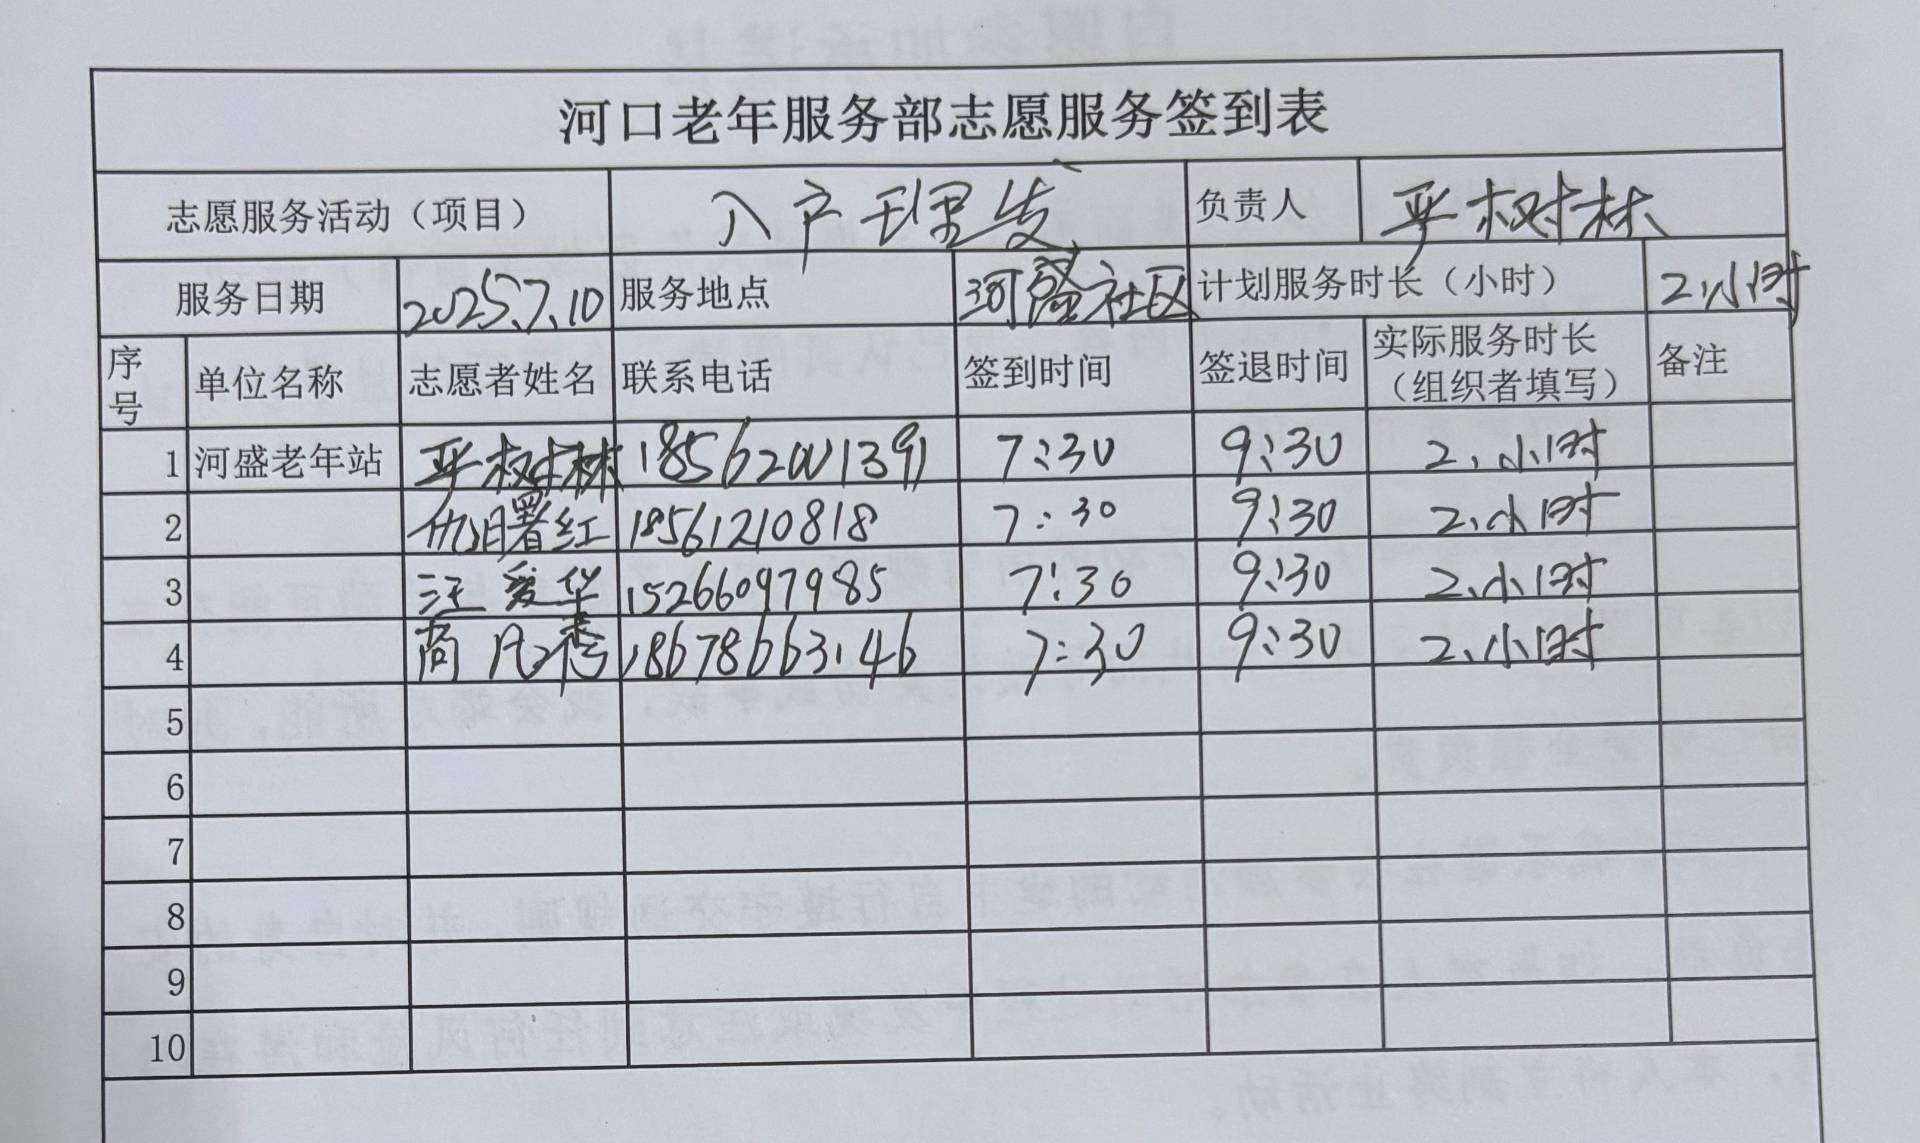 河口老年服务部志愿服务签到表
志愿服务活动（项目） 入户理发 负责人 平树林
服务日期 2025.7.10 服务地点 河盛社区 计划服务时长（小时） 2小时
序号 单位名称 志愿者姓名 联系电话 签到时间 签退时间 实际服务时长（组织者填写） 备注
1 河盛老年站 平树林 18562001391 7:30 9:30 2小时
2 仇曙红 18561210818 7:30 9:30 2小时
3 汪爱华 15266097985 7:30 9:30 2小时
4 商凡秀 18678663146 7:30 9:30 2小时
5
6
7
8
9
10